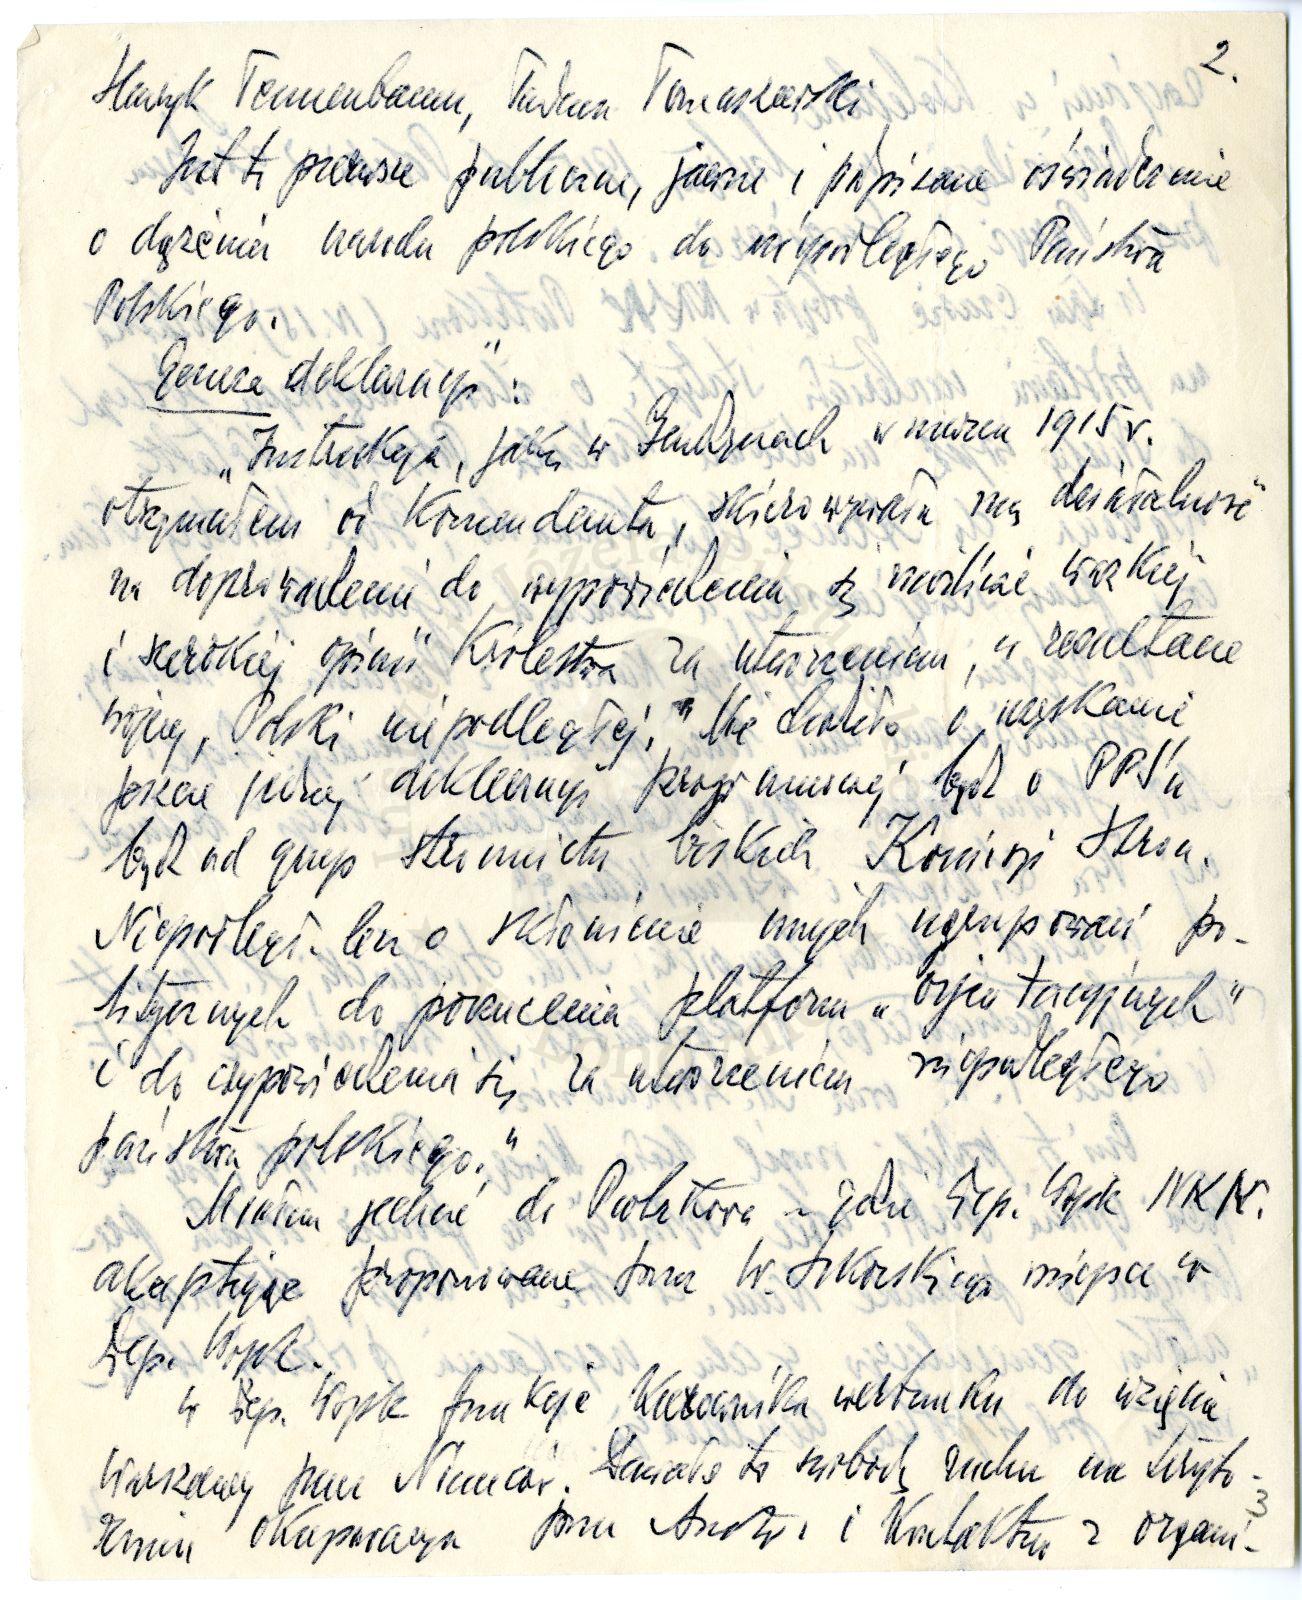 2.
Henryk Tennenbaum, Tadeusz Tomaszewski
Jest to pierwsze publiczne, jawne i podpisane oświadczenie
o dążeniu narodu polskiego do niepodległego Państwa
Polskiego.
Geneza deklaracji":
„Instrukcja, jaką w Grudzynach w marcu 1915 r.
otrzymałem od Komendanta, skierowywała mą działalność
na doprowadzenie do wypowiedzenia się możliwie wszelkiej
i szerokiej opinii Królestwa za utworzeniem, w rezultacie
wojny, Polski niepodległej." Nie chodziło o uzyskanie
jeszcze jednej deklaracji programowej bądź o PPS'u
bądź od grup stronnictw bliskich Komisji Stron.
Niepodległ. lecz o skłonienie innych ugrupowań po-
litycznych do porzucenia platform „orjentacyjnych"
i do wypowiedzenia się za utworzeniem niepodległego
państwa polskiego."
Miałem jechać do Piotrkowa - gdzie Dep. Wojsk NKN.
akceptując proponowane przez W. Sikorskiego miejsce w
Dep. Wojsk.
W Dep. Wojsk funkcje kierownika werbunku do wzięcia
Warszawy przez Niemców. Dawało to swobodę ruchu na teryto-
rium okupowanym przez Austr. i kontaktu z organi-
3